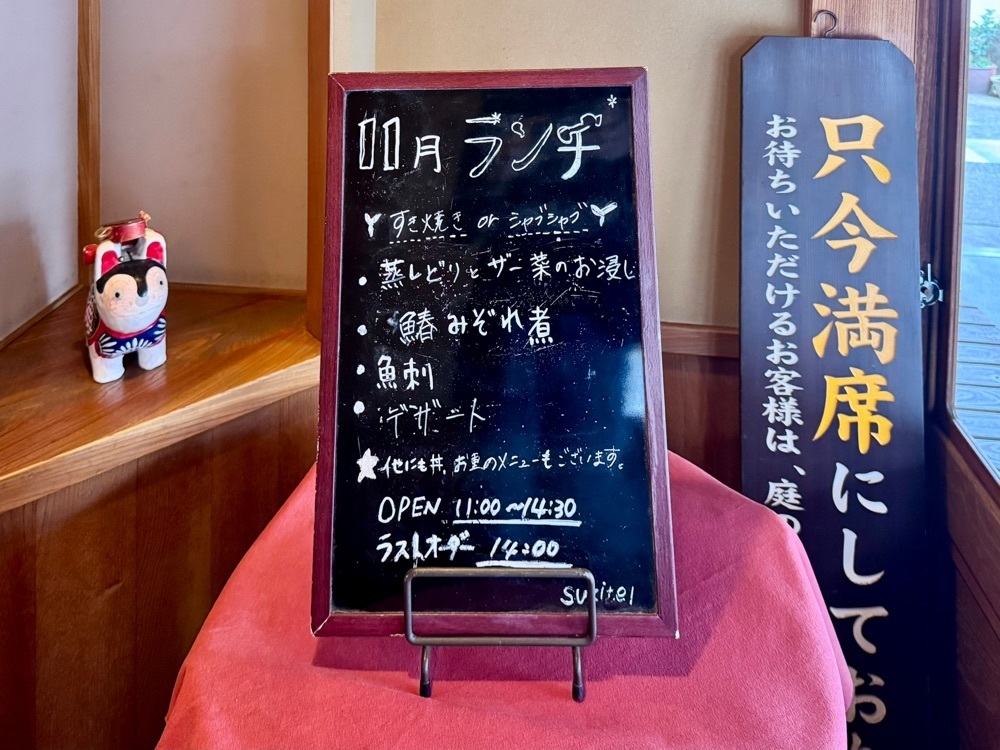 11月 ランチ
すき焼き or シャブシャブ
・蒸しどりとザー菜のお浸し
・鰆みぞれ煮
・魚刺
・デザート
★他にも丼、お重のメニューもございます。
OPEN 11:00〜14:30
ラストオーダー 14:00
只今満席にしてお
お待ちいただけるお客様は、庭